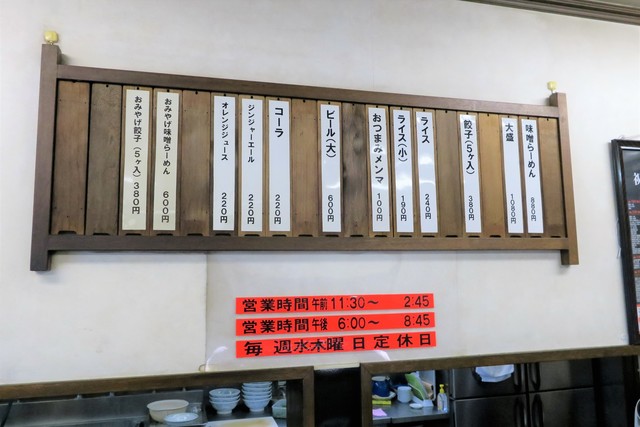 味噌らーめん 880円
大盛 1080円
餃子(5ヶ入) 380円
ライス 240円
ライス(小) 190円
おつまみメンマ 100円
ビール(大) 600円
コーラ 220円
ジンジャーエール 220円
オレンジジュース 220円
おみやげ味噌らーめん 600円
おみやげ餃子(5ヶ入) 380円
営業時間午前11:30〜 2:45
営業時間午後 6:00〜 8:45
毎週水木曜日定休日